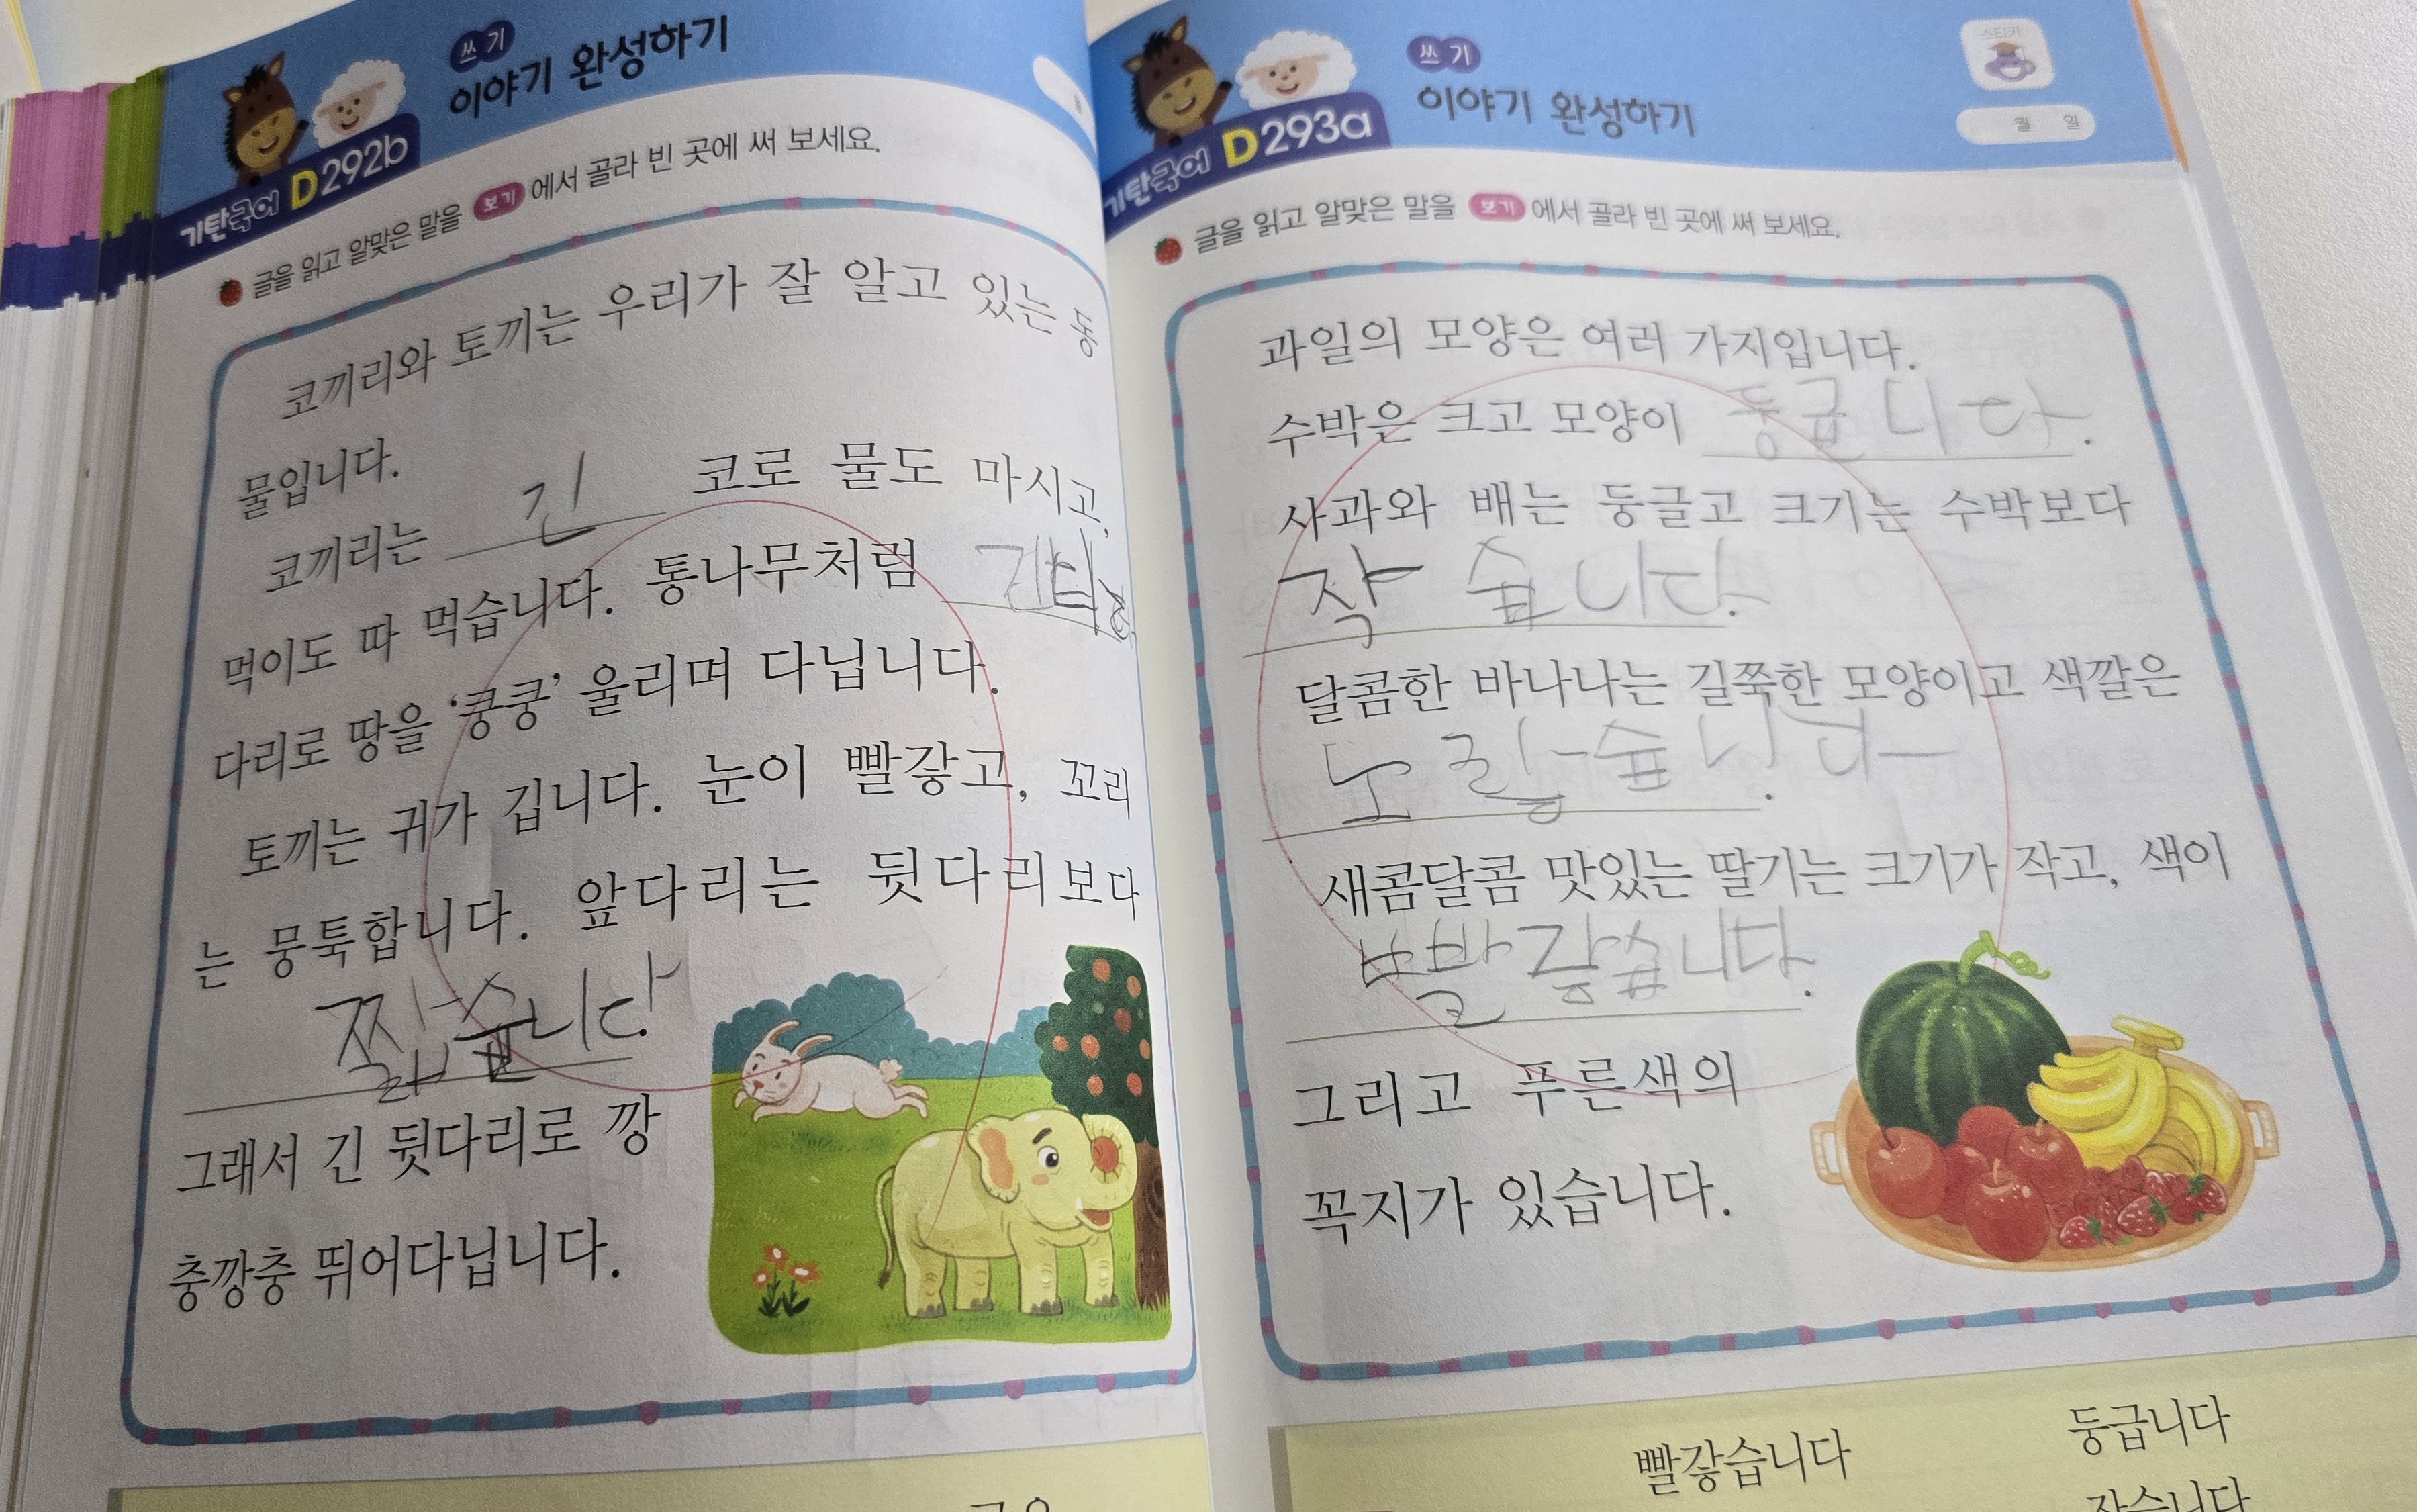 쓰기
이야기 완성하기
기탄국어 D292b
글을 읽고 알맞은 말을 보기 에서 골라 빈 곳에 써 보세요.
코끼리와 토끼는 우리가 잘 알고 있는 동
물입니다.
코끼리는 긴 코로 물도 마시고,
먹이도 따 먹습니다. 통나무처럼
다리로 땅을 ‘쿵쿵’ 울리며 다닙니다.
토끼는 귀가 깁니다. 눈이 빨갛고, 꼬리
는 뭉툭합니다. 앞다리는 뒷다리보다
짧습니다
그래서 긴 뒷다리로 깡
충깡충 뛰어다닙니다.
쓰기
이야기 완성하기
스티커
월 일
기탄국어 D293a
글을 읽고 알맞은 말을 보기 에서 골라 빈 곳에 써 보세요.
과일의 모양은 여러 가지입니다.
수박은 크고 모양이 둥급니다.
사과와 배는 둥글고 크기는 수박보다
작습니다.
달콤한 바나나는 길쭉한 모양이고 색깔은
노랗습니다.
새콤달콤 맛있는 딸기는 크기가 작고, 색이
빨갛습니다.
그리고 푸른색의
꼭지가 있습니다.
빨갛습니다 둥급니다
작습니다